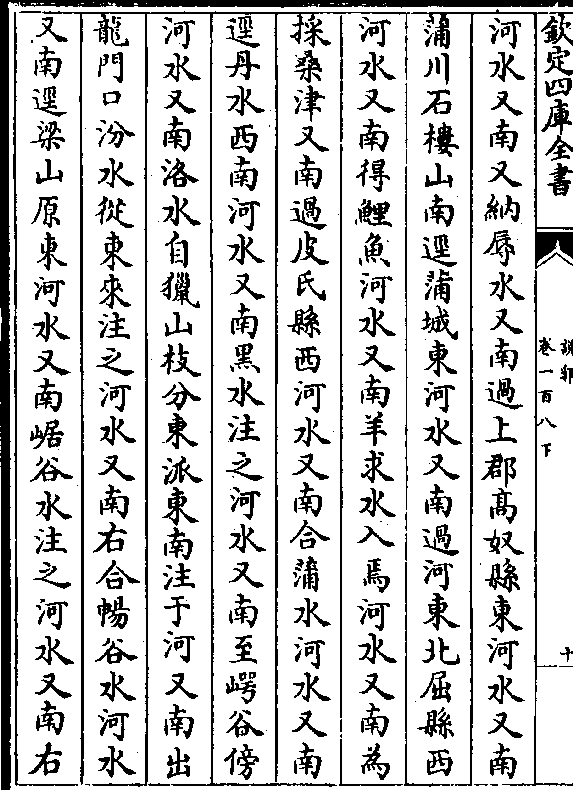 欽定四庫全書
說郛
卷一百八下
十
河水又南又納辱水又南過上郡髙奴縣東河水又南
蒲川石樓山南逕蒲城東河水又南過河東北屈縣西
河水又南得鯉魚河水又南羊求水入焉河水又南為
採桑津又南過皮氏縣西河水又南合蒲水河水又南
逕丹水西南河水又南黑水注之河水又南至崿谷傍
河水又南洛水自獵山枝分東派東南注于河又南出
龍門口汾水從東來注之河水又南右合暢谷水河水
又南逕梁山原東河水又南崌谷水注之河水又南右